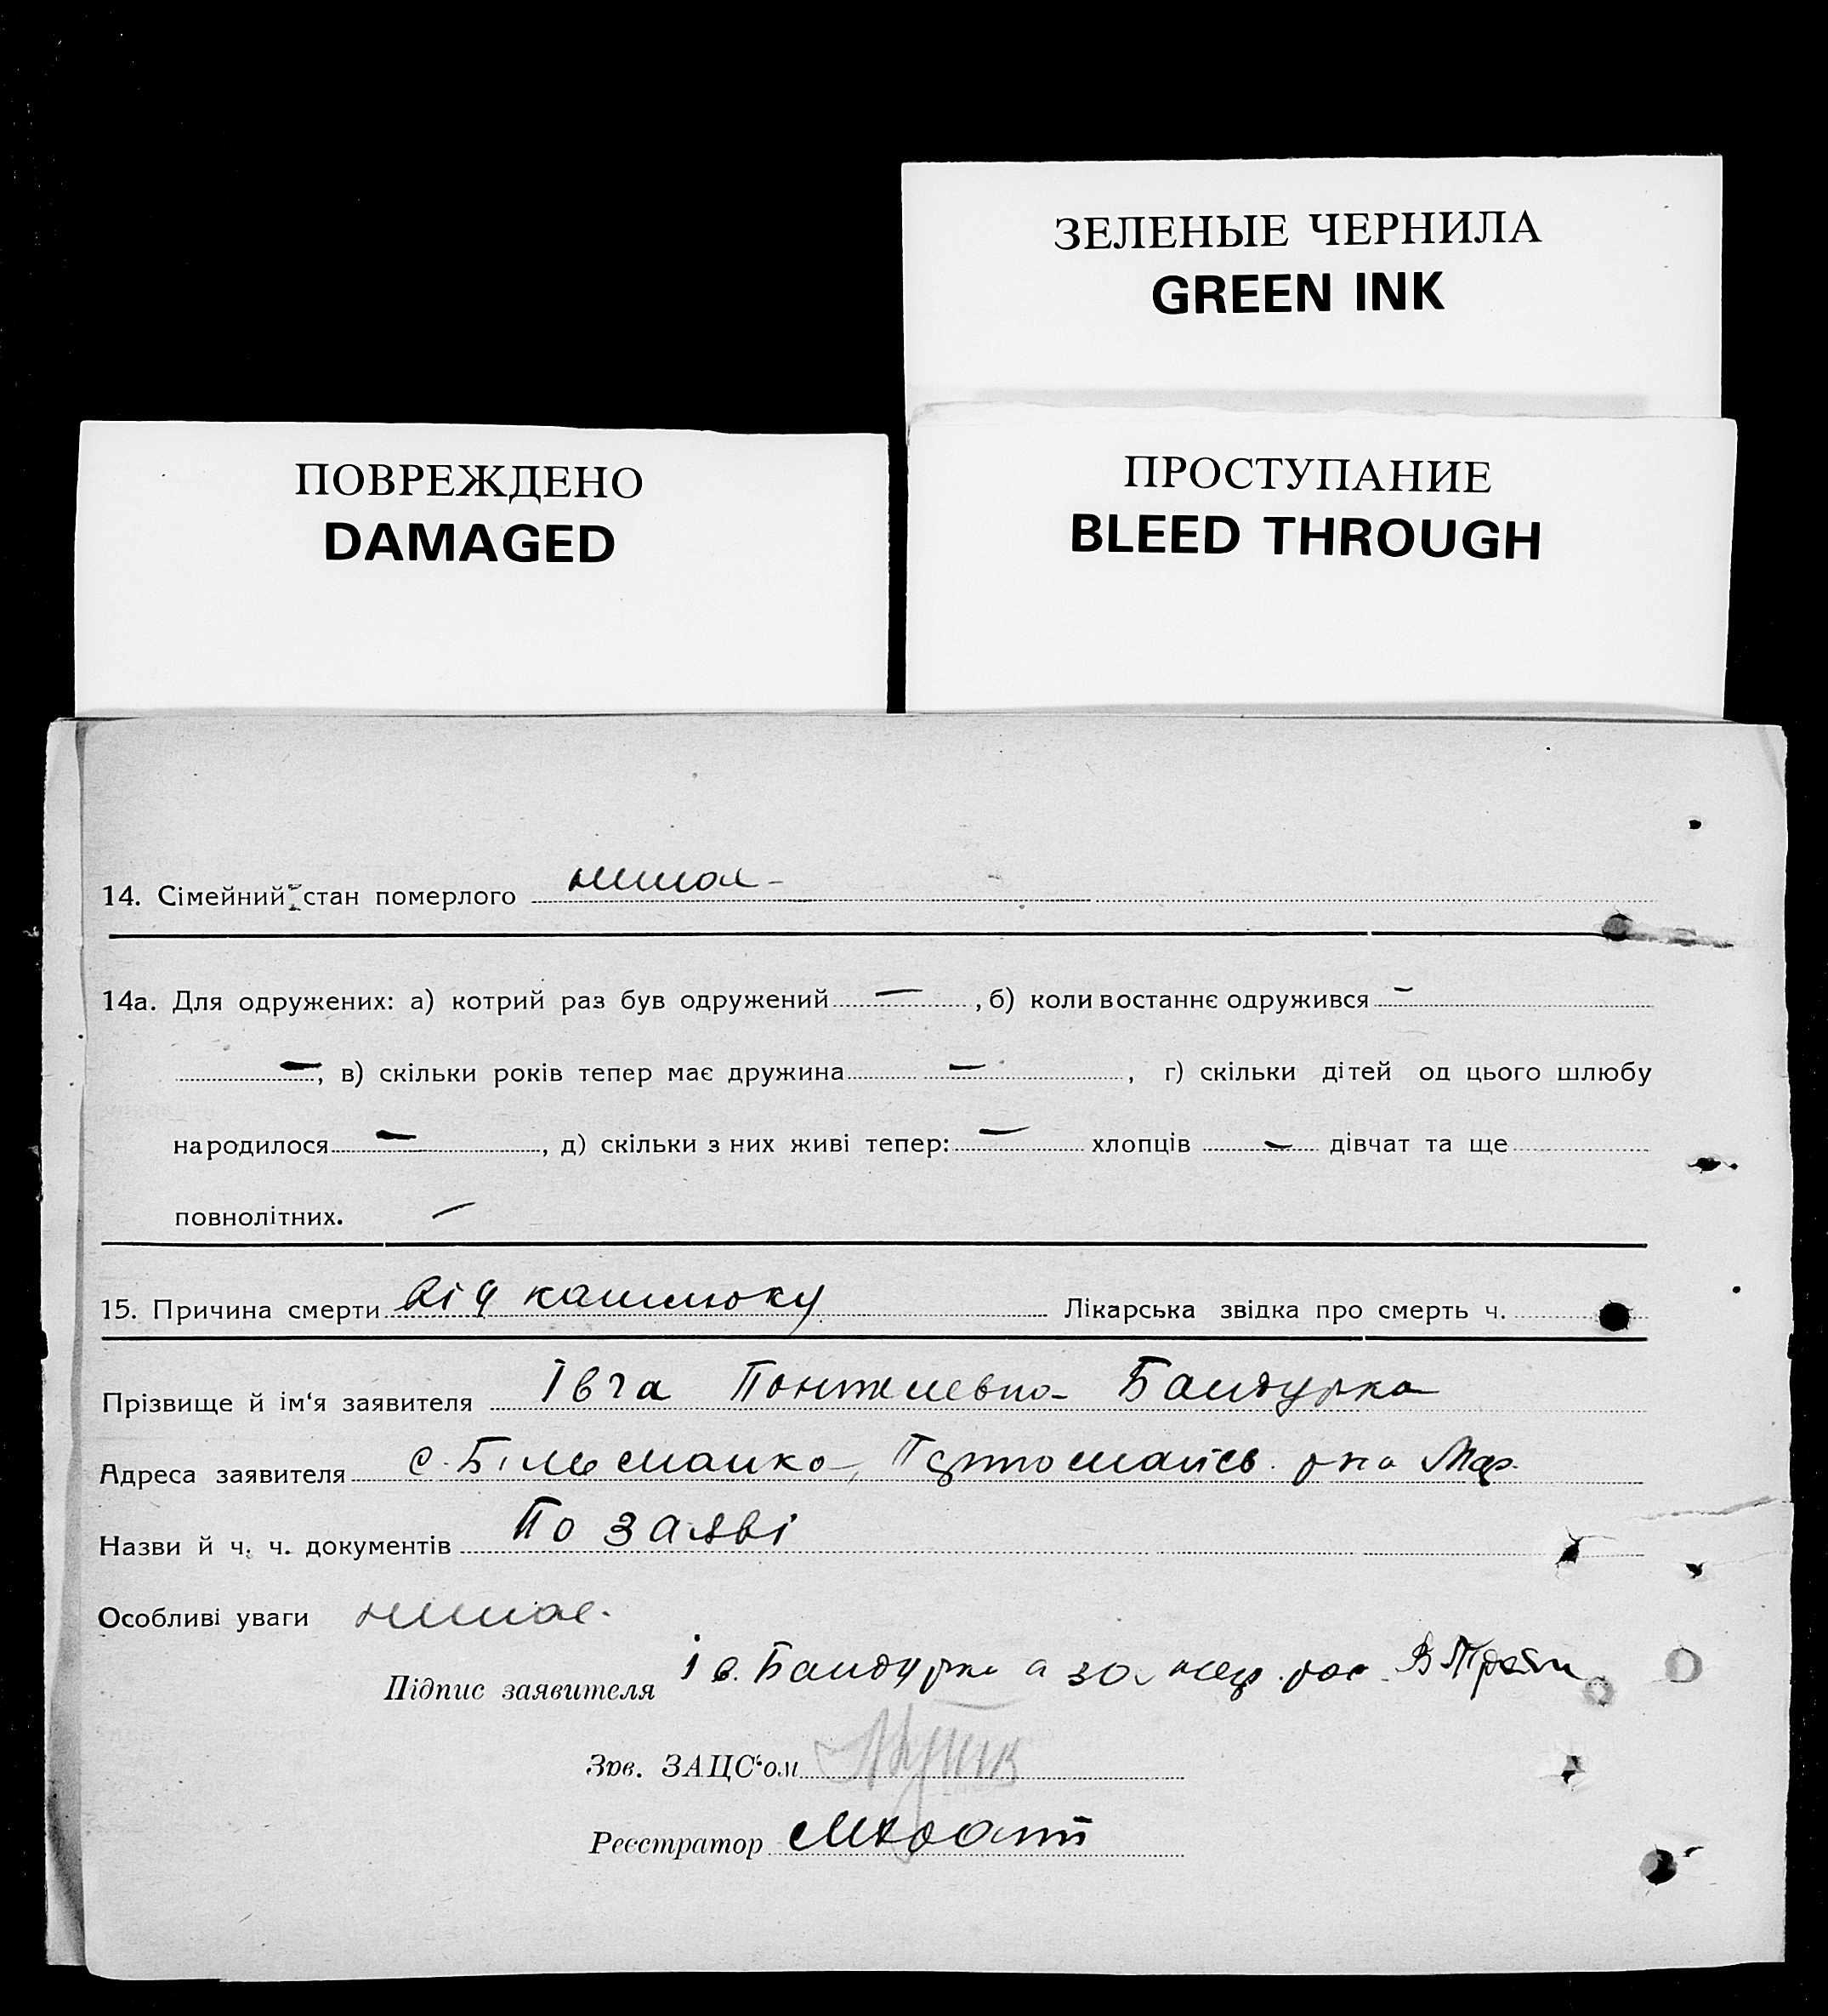 ЗЕЛЕНЫЕ ЧЕРНИЛА
GREEN INK
ПОВРЕЖДЕНО
DAMAGED
ПРОСТУПАНИЕ
BLEED THROUGH
14. Сімейний стан померлого немає -
14а. Для одружених: а) котрий раз був одружений — , б) коли востаннє одружився —
— , в) скільки років тепер має дружина — , г) скільки дітей од цього шлюбу
народилося — , д) скільки з них живі тепер: — хлопців — дівчат та ще
повнолітних. —
15. Причина смерти від кашлюку Лікарська звідка про смерть ч.
Прізвище й ім'я заявителя Івга Бандурка
Адреса заявителя с. Більманка, рна
Назви й ч. ч. документів По заяві
Особливі уваги немає.
Підпис заявителя Ів. Бандурка а за
Зав. ЗАЦС'ом
Реєстратор